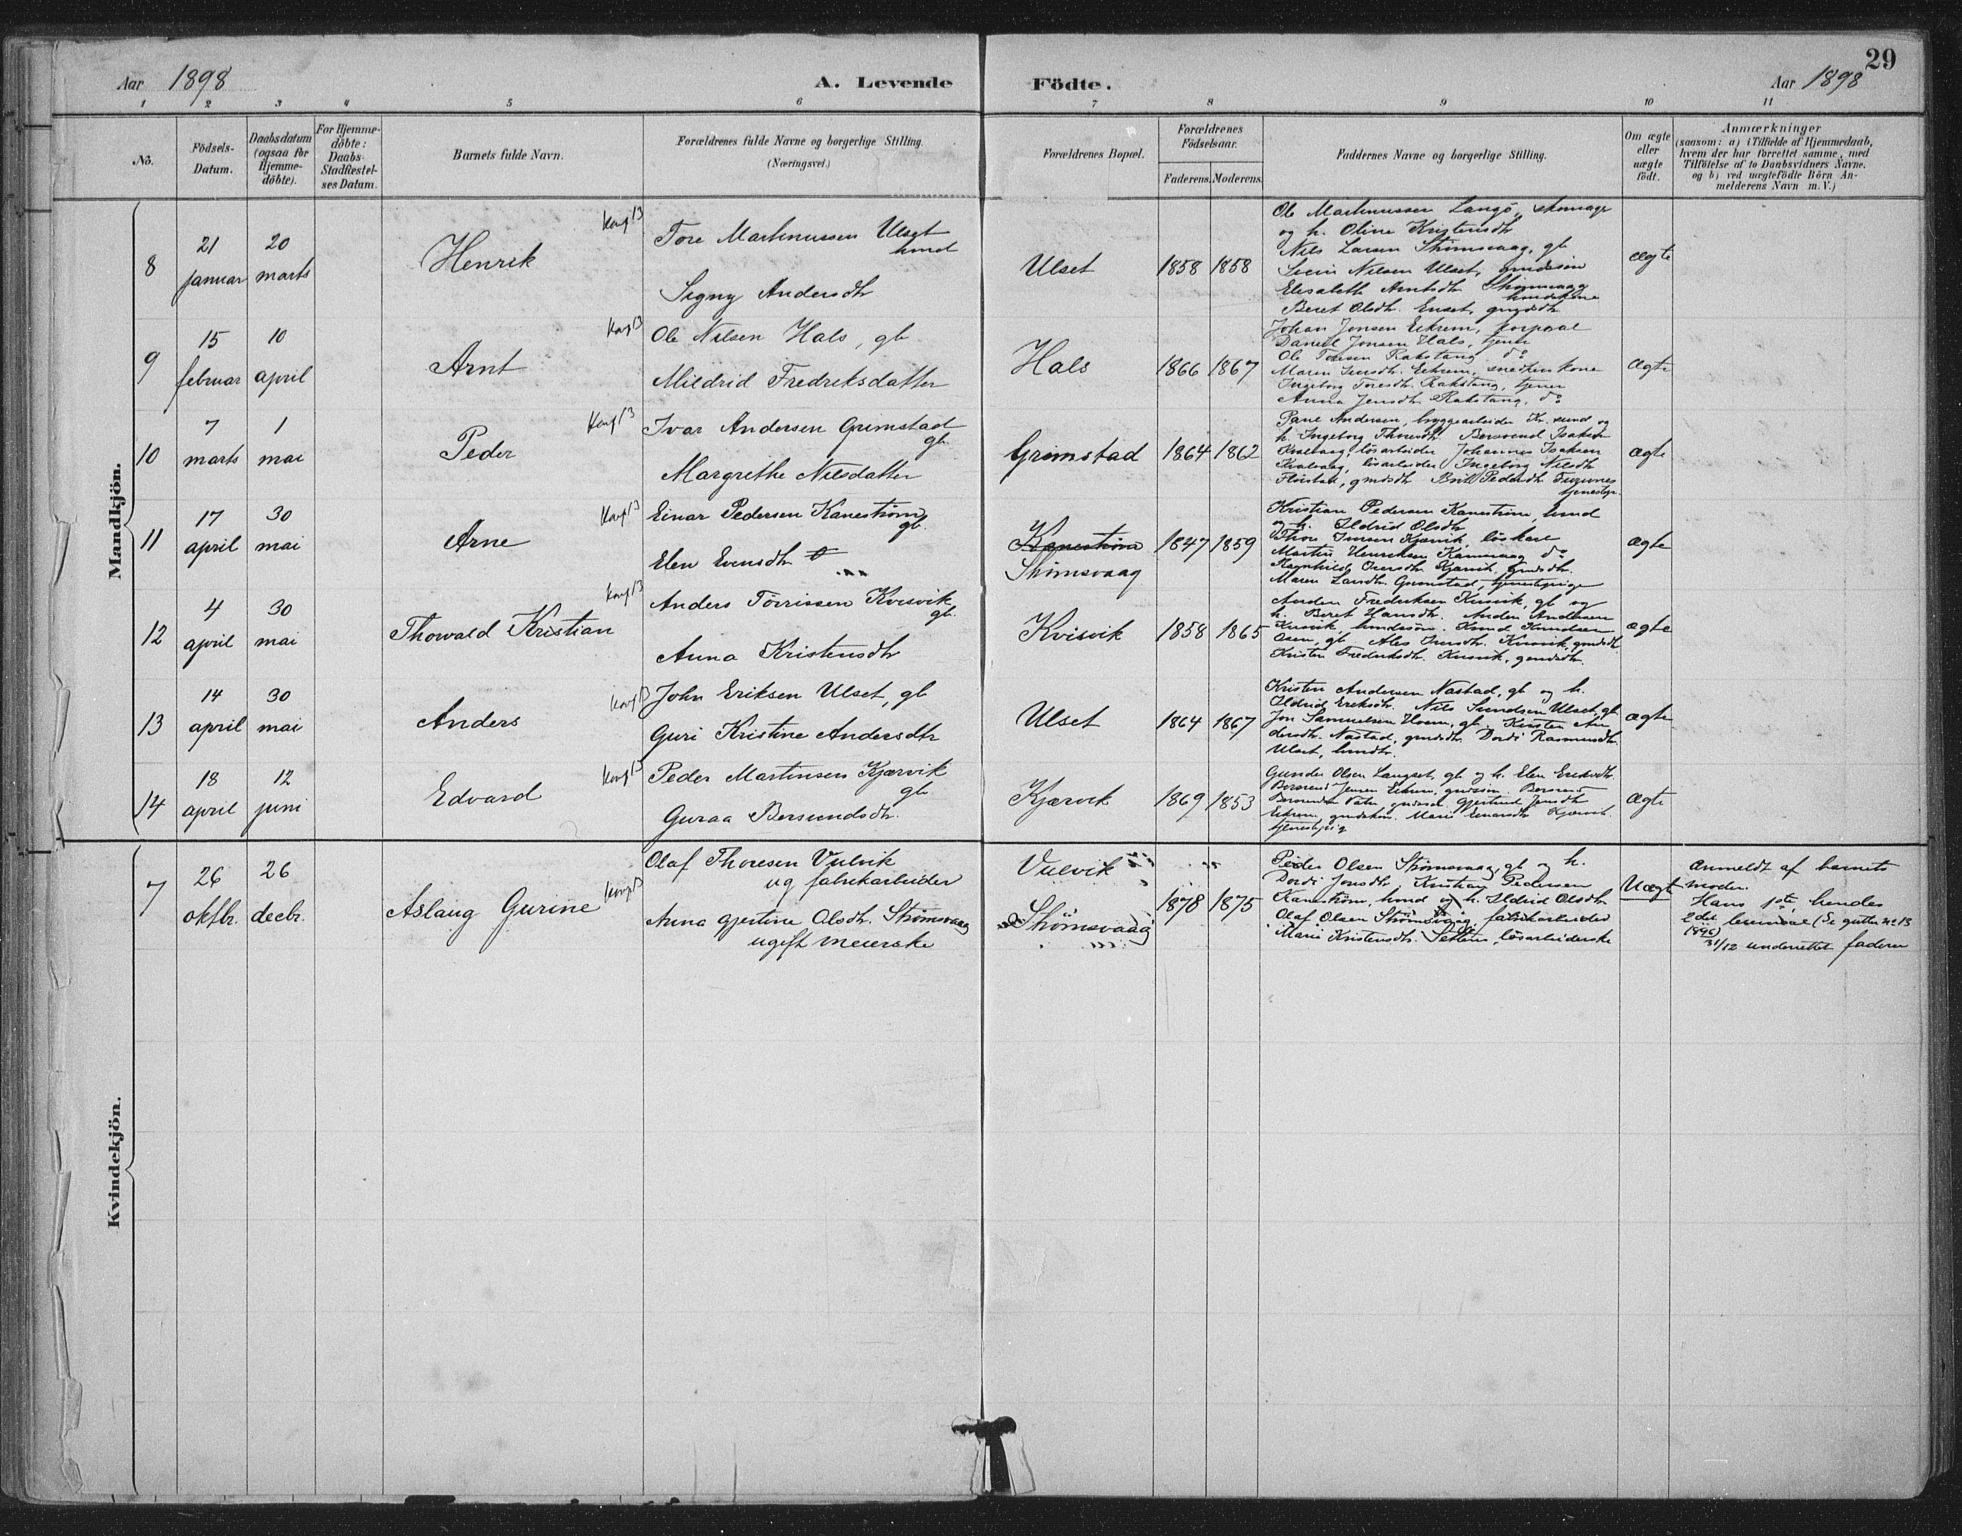 29
Aar 1898 A. Levende Födte. Aar 1898
1 2 3 4 5 6 7 8 9 10 11
No.
Födsels-Datum.
Daabsdatum (ogsaa for Hjemme-döbte).
For Hjemme-döbte: Daabs-Stadfæstel-ses Datum.
Barnets fulde Navn.
Forældrenes fulde Navne og borgerlige Stilling.
(Næringsvei.)
Forældrenes Bopæl.
Forældrenes Födselsaar.
Faderens. Moderens.
Faddernes Navne og borgerlige Stilling.
Om ægte eller uægte födt.
Anmærkninger
(saasom: a) i Tilfælde af Hjemmedaab,
hvem der har forrettet samme, med
Tilföielse af to Daabsvidners Navne.
og b) ved uægtefödte Börn An-
melderens Navn m. V.)
Mandkjön.
8
21 januar
20 marts
Henrik
Tore Martinussen Ulset
Signy Andersdtr
Ulset
1858 1858
Ole Martinussen
og h. Oline Kristensdtr
Nils Larsen Strømsvaag, gb
Nilsen Ulset, gmdsøn
Elisabeth Arntsdtr Strømsvaag
Beret Olsdtr. Enset, gmdsdtr
ægte
9
15 februar
10 april
Arnt
Ole Nilsen Hals, gb
Mildrid Fredriksdatter
Hals
1866 1867
Johan Jonsen Eikrem, korporal
Daniel Jonsen Hals, tjener
Ole Toresen Rakstang do
Maren Eikrem, snedkerkone
Ingeborg Toresdtr. Rakstang, tjener
Anna Jensdtr Rakstang, do
ægte
10
7 marts
1 mai
Peder
Ivar Andersen Grimstad
gb
Margrethe Nilsdatter
Grimstad
1864 1862
Andersen, bryggearbeider Kr. sund og
h. Ingeborg Thoresdtr
Kvalvaag, løsarbeider Johannes Isaksen
Kvalvaag, løsarbeider Ingeborg Nilsdtr
gmdsdtr Brit Pedersdtr
ægte
11
17 april
30 mai
Arne
Einar Pedersen Kanestrøm
gb.
Elen Evensdtr
Kanestrøm
Strømsvaag
1847 1859
Kristian Pedersen Kanestrøm, hmd
og h. Ildrid Olsdtr
Thore Jensen Kjærvik, løskarl
Martin Henriksen do
Ragnhild Kjærvik, gmdsdtr.
Maren Larsdtr. Grimstad, tjenestepige
ægte
12
4 april
30 mai
Thorvald Kristian
Anders Tørrissen Kvisvik
gb.
Anna Kristensdtr
Kvisvik
1858 1865
Anders Fredriksen Kvisvik, gb og
h. Beret Hansdtr. Anders Andersen
Kvisvik, Knud Knudsen
Osen, gb Kvisvik, gmdsdtr.
Kristen Fredriksdtr. Kvisvik, gmdsdtr
ægte
13
14 april
30 mai
Anders
John Eriksen Ulset, gb
Guri Kristine Andersdtr
Ulset
1864 1867
Kristen Andersen Nastad, gb og h.
Ildrid Eriksdtr. Nils Ulset, gb
Jon Samuelsen Hoem, gb. Kirsten An
dersdtr. Nastad, gmdsdtr. Dordi Rasmusdtr.
Ulset,
ægte
14
18 april
12 juni
Edvard
Peder Martinsen Kjærvik
gb
Guraa Bersundsdtr.
Kjærvik
1869 1853
Gunder Olsen Langset, gb og h. Elen Eriksdtr.
Jensen Eikrem, gmdssøn.
Gjertrud Jensdtr
Eikrem, Marie Einarsdtr Kjærvik
tjenestepig
ægte
Kvindekjön.
7
26 oktbr.
26 decbr.
Aslaug Gurine
Olaf Thoresen Vulvik
ug fabrikarbeider
Anna Gjertine Olsdtr. Strømsvaag
ugift meierske
Vulvik
Strømsvaag
1878 1875
Peder Olsen Strømsvaag, gb og h.
Dordi Jonsdtr, Kristian Pedersen
Kanestrøm, hmd og h. Ildrid Olsdtr
Olaf Olsen Strømsvaag, fabrikarbeider
Marie Kristensdtr. løsarbeiderske
Uægt
anmeldt af barnets
moder.
Hans 1ste, hendes
2det leiermaal (Se gutter no 13
1896)
31/12 underrettet faderen